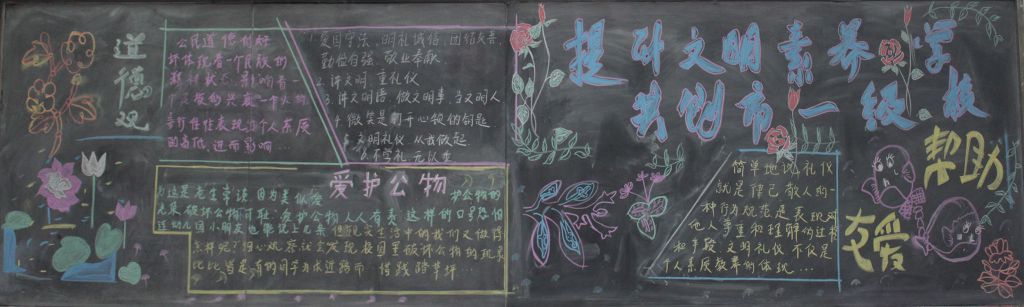 道德观
公民道德的好
坏体现着一个民族的
精神状态，影响着
一个民族的兴衰一个人的
言行往往表现出个人素质
的高低，进而影响…
1. 爱国守法、明礼诚信、团结友善、
勤俭自强、敬业奉献
2. 讲文明 重礼仪
3. 讲文明语、做文明事、当文明人
4 微笑是打开心锁的钥匙
5 文明礼仪 从我做起
6 不学礼 无以立
爱护公物
这是老生常谈 因为类似爱 护公物的
光荣 破坏公物可耻 爱护公物 人人有责 这样的口号恐怕
连幼儿园小朋友也能说上几条 但现实生活中的我们又做得
怎样呢？细心观察就会发现校园里破坏公物的现象
比比皆是 有的同学为求近路而 横践踏草坪…
提升文明素养 学
共创市一级校
简单地说礼仪
就是律己敬人的一
种行为规范是表现对
他人尊重和理解的过程
和手段 文明礼仪 不仅是
个人素质教养的体现…
帮助
友爱